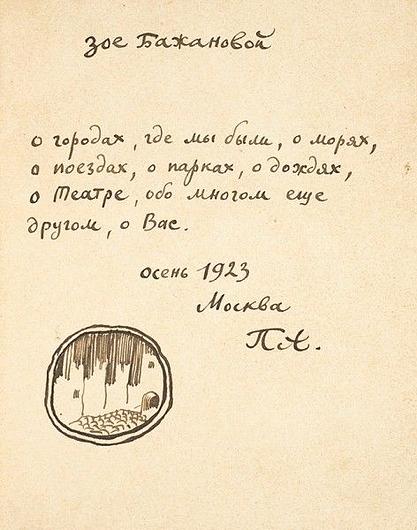 зое Бажановой
о городах, где мы были, о морях,
о поездах, о парках, о дождях,
о Театре, обо многом еще
другом, о Вас.
осень 1923
Москва
ПА.